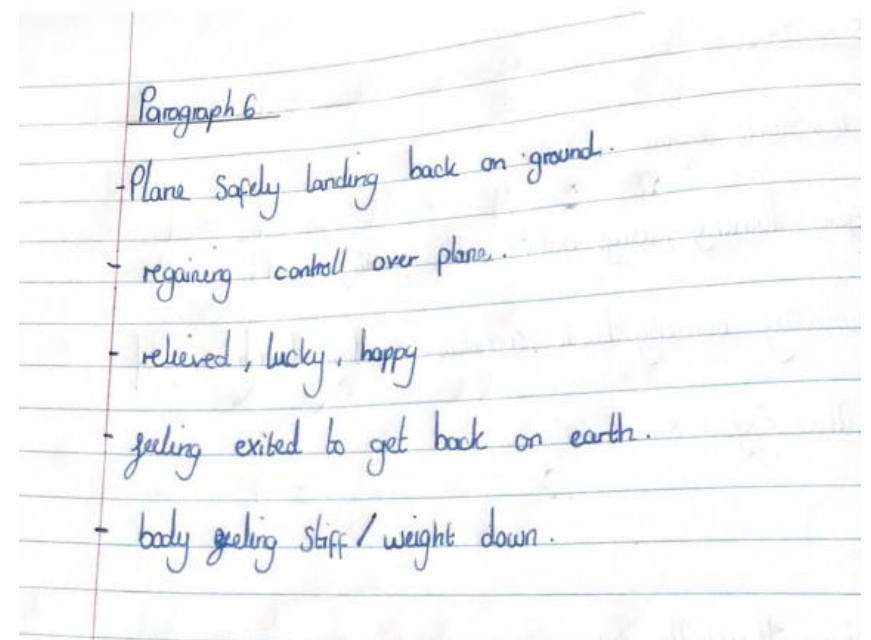 Paragraph 6
- Plane safely landing back on ground.
- regaining controll over plane.
- relieved, lucky, happy
- feeling exited to get back on earth.
- body feeling stiff / weight down.